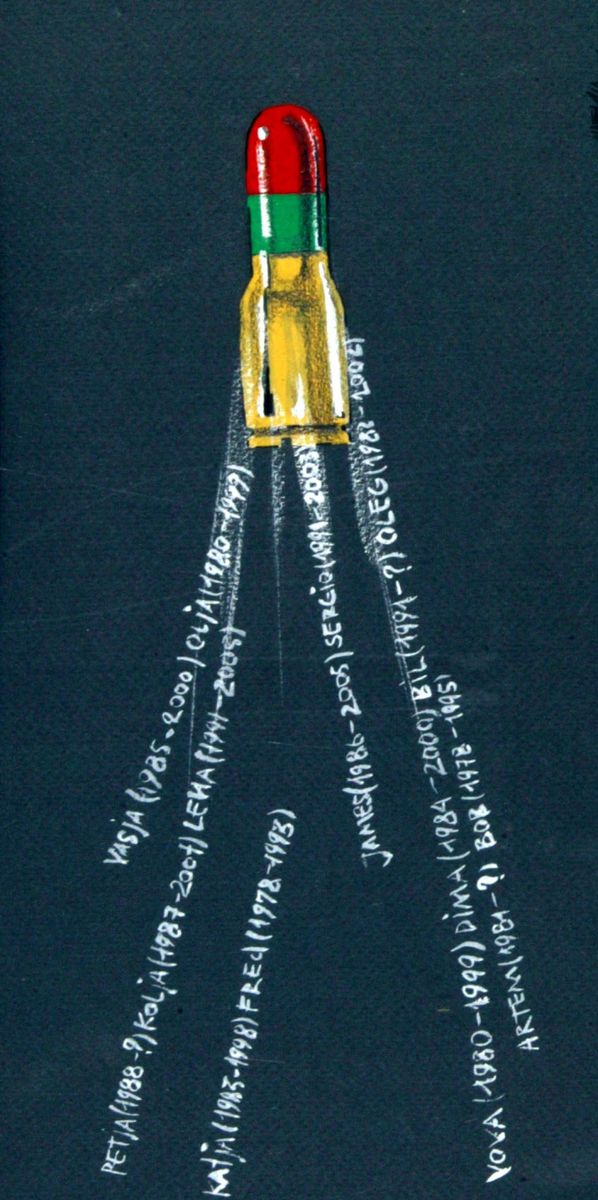 VASJA (1985-2000) OLJA (1980-1999)
PETJA (1988-?) KOLJA (1987-2007) LENA (1991-2005)
KATJA (1983-1998) FRED (1978-1993)
JAMES (1986-2005) SERGIO (1991-2003)
VOVA (1980-1999) DIMA (1984-2000) BIL (1991-?) OLEG (1982-2002)
ARTEM (1981-?) BOB (1978-1995)